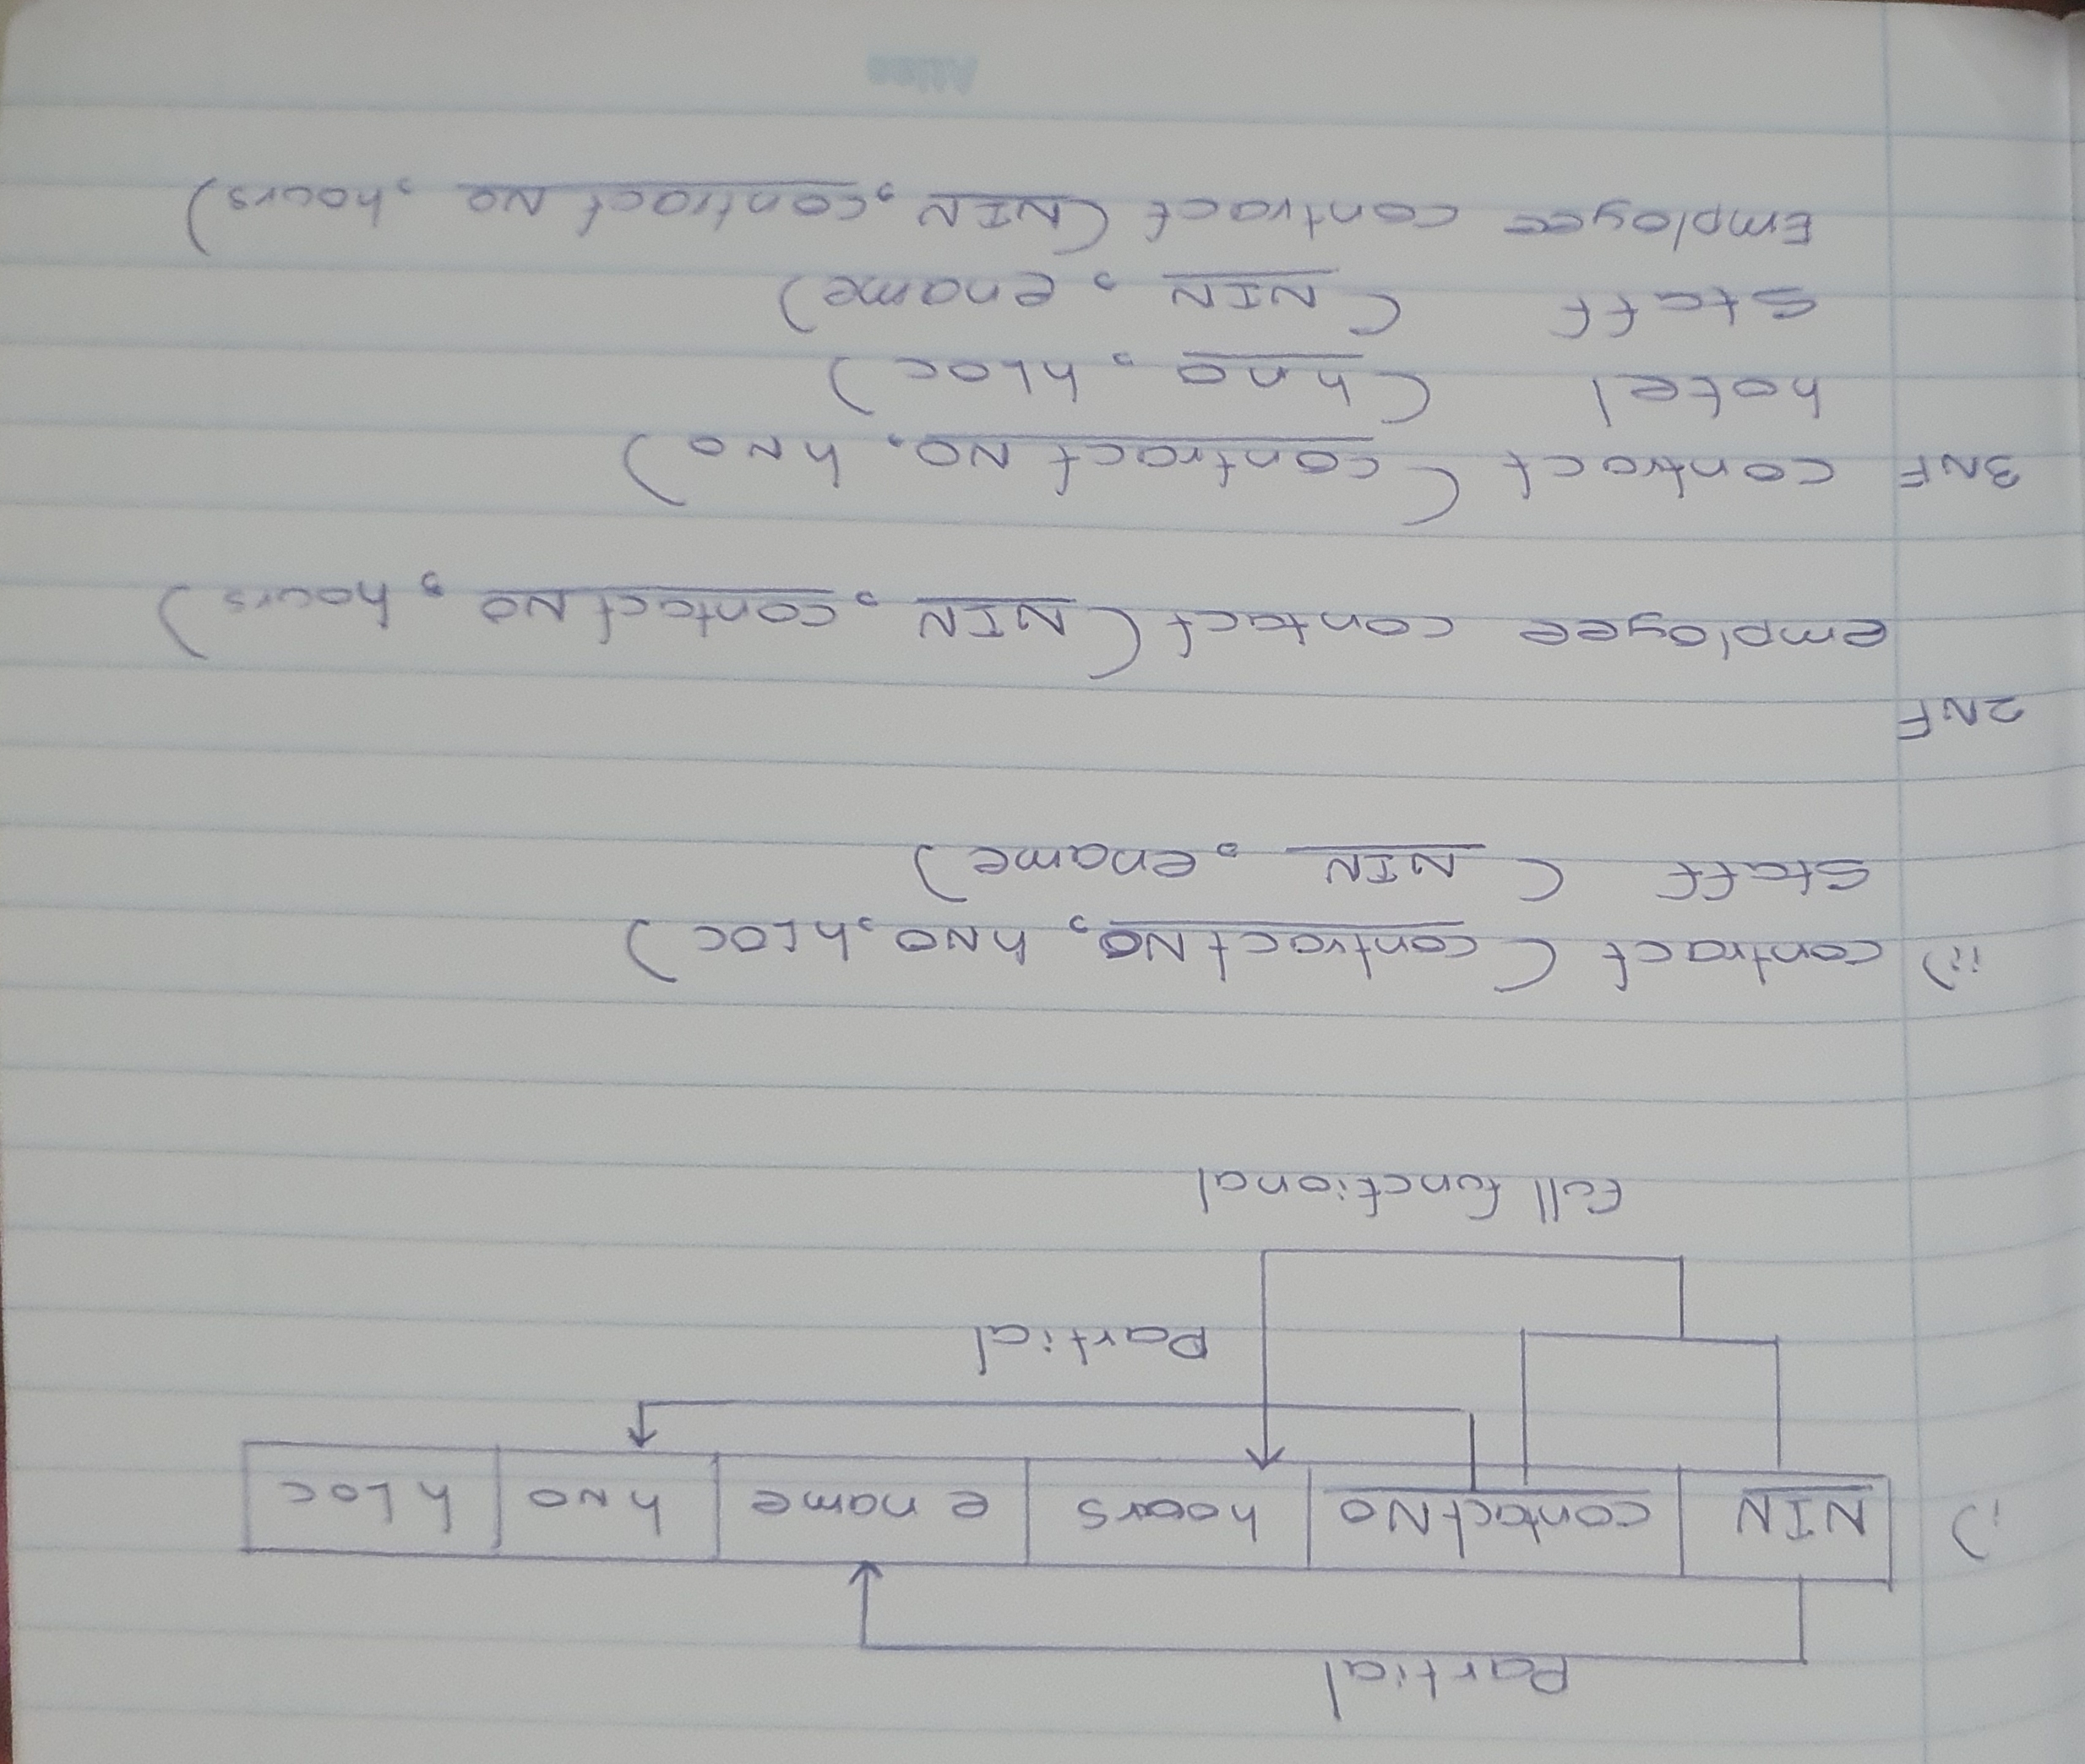 Partial
i) NIN contactNo hours ename hNo hLoc
Partial
Full functional
ii) contract (contractNo, hNo, hLoc)
Staff (NIN, ename)
2NF
employee contact (NIN, contact No, hours)
3NF contract (contract No, hNo)
hotel (hno, hLoc)
Staff (NIN, ename)
Employee contract (NIN, contract No, hours)
Atlas